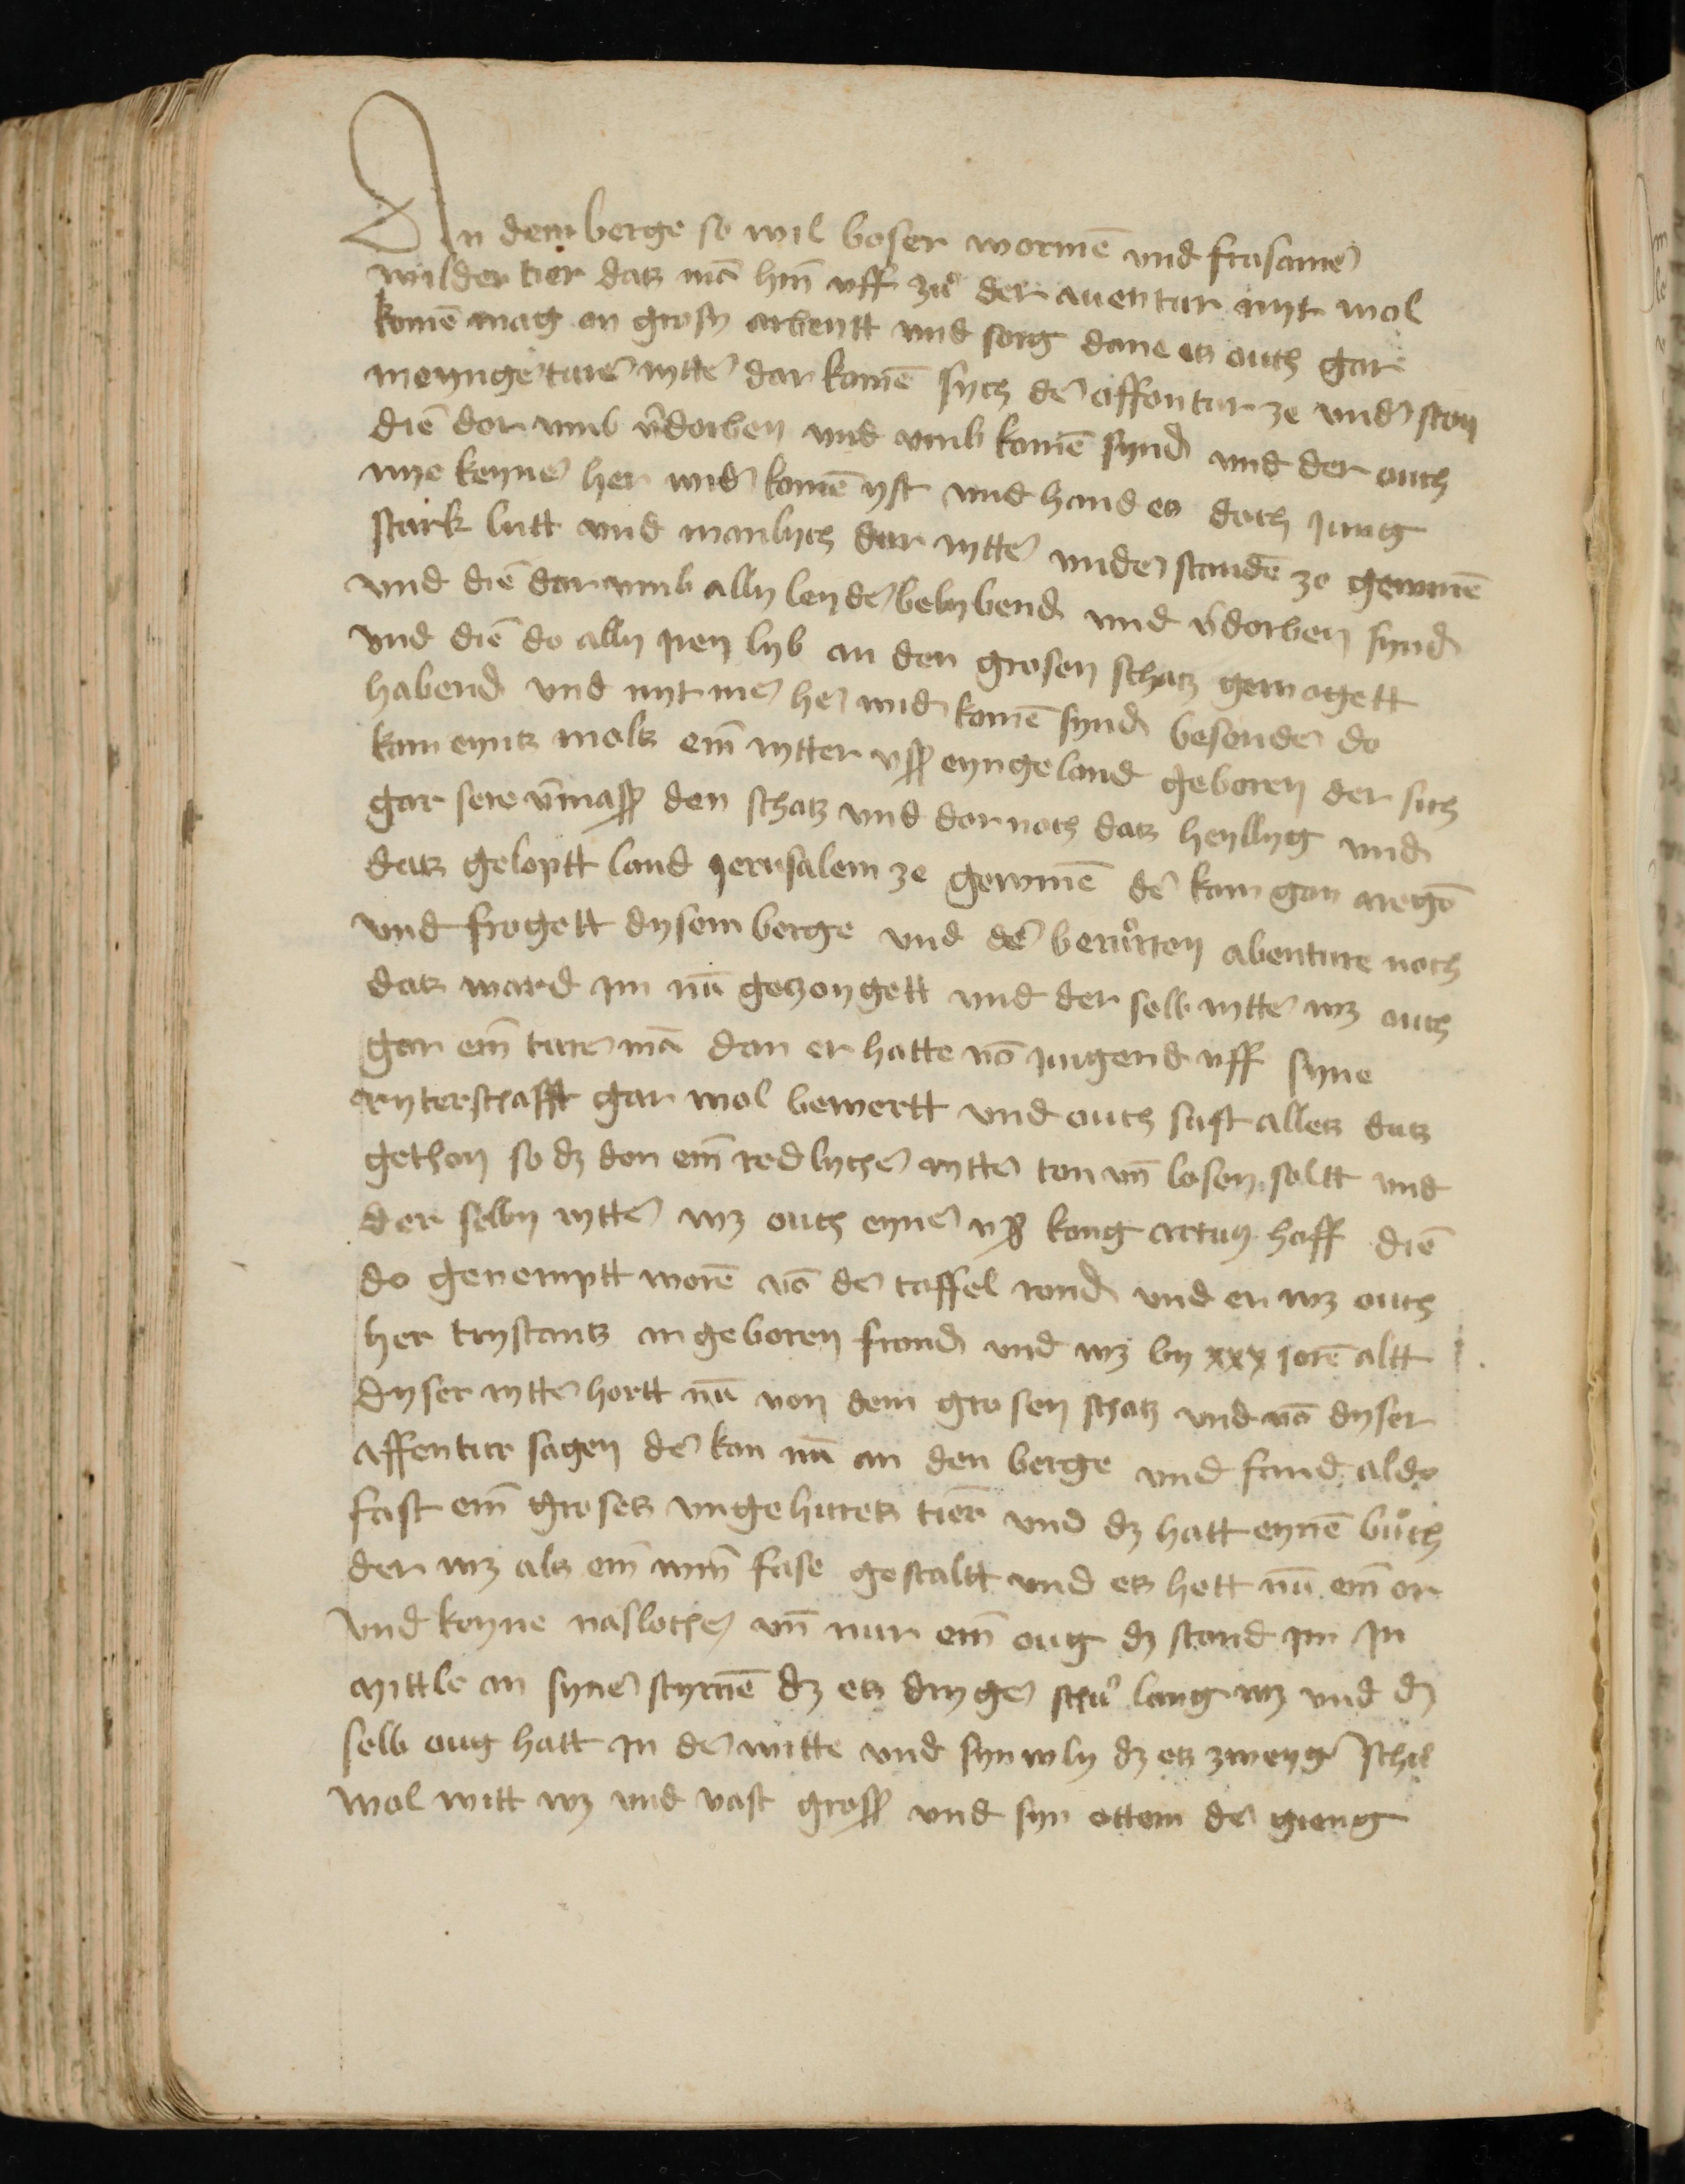 An dem berge so wil boser wormē und frasamē
wilder tier datz mā hin̄ uff zuͦ der auentur nyt wol
komē mag on grosy arbeytt und sorg dane etz ouch gar
meynge turē rytter dar komē sych dē affentur ze underston
diē dor umb v̄dorben und umb komē synd und der ouch
nye keyner her wider komē yst und hand es doch jung
stark lutt und manlych dar rytter understandē ze gewinē
und diē dar umb ally leyder belybend und v̄dorben synd
und diē do ally iren lyb an den grosen schatz gewogett
habend und nyt mer her wider komē synd besonder do
kam eyntz moltz ein̄ rytter usß eyngeland geboren der sich
gar sere v̄masß den schatz und dor noch datz heyllyg und
datz geloptt land jerusalem ze gewinē der kam gan aregō
und frogett dysem berge und der beruͦrten abenture noch
datz ward im nū gezongett und der selb rytter wz ouch
gar ein̄ turer mā dan er hatte vō jungend uff syne
ryterschafft gar wol bewertt und ouch sust alletz datz
gethon so dz don ein̄ redlycher rytter ton un̄ loson soltt und
der selby rytter wz ouch eyner usß kong artus hoff diē
do genemptt worē vō der taffel rond und er wz ouch
her trystantz an geboren frond und wz by xxx jorē altt
dyser rytter hortt nū von dem grosen schatz und vō dyser
affentur sagen der kan nū an den berge und fand aldo
fast ein̄ grosetz ungehuretz tier und dz hatt eynē buͦch
der wz alz ein̄ win̄ fase gestaltt und etz hett nū ein̄ or
und keyne naslocher un̄ nur ein̄ oug dz stond im in
mittle an syner styrnē dz etz dryger schuͦ lang wz und dz
selb oug hatt in der witte und synwly dz etz zweyger schu
wol witt wz und vast grosß und syn ottom der gieng